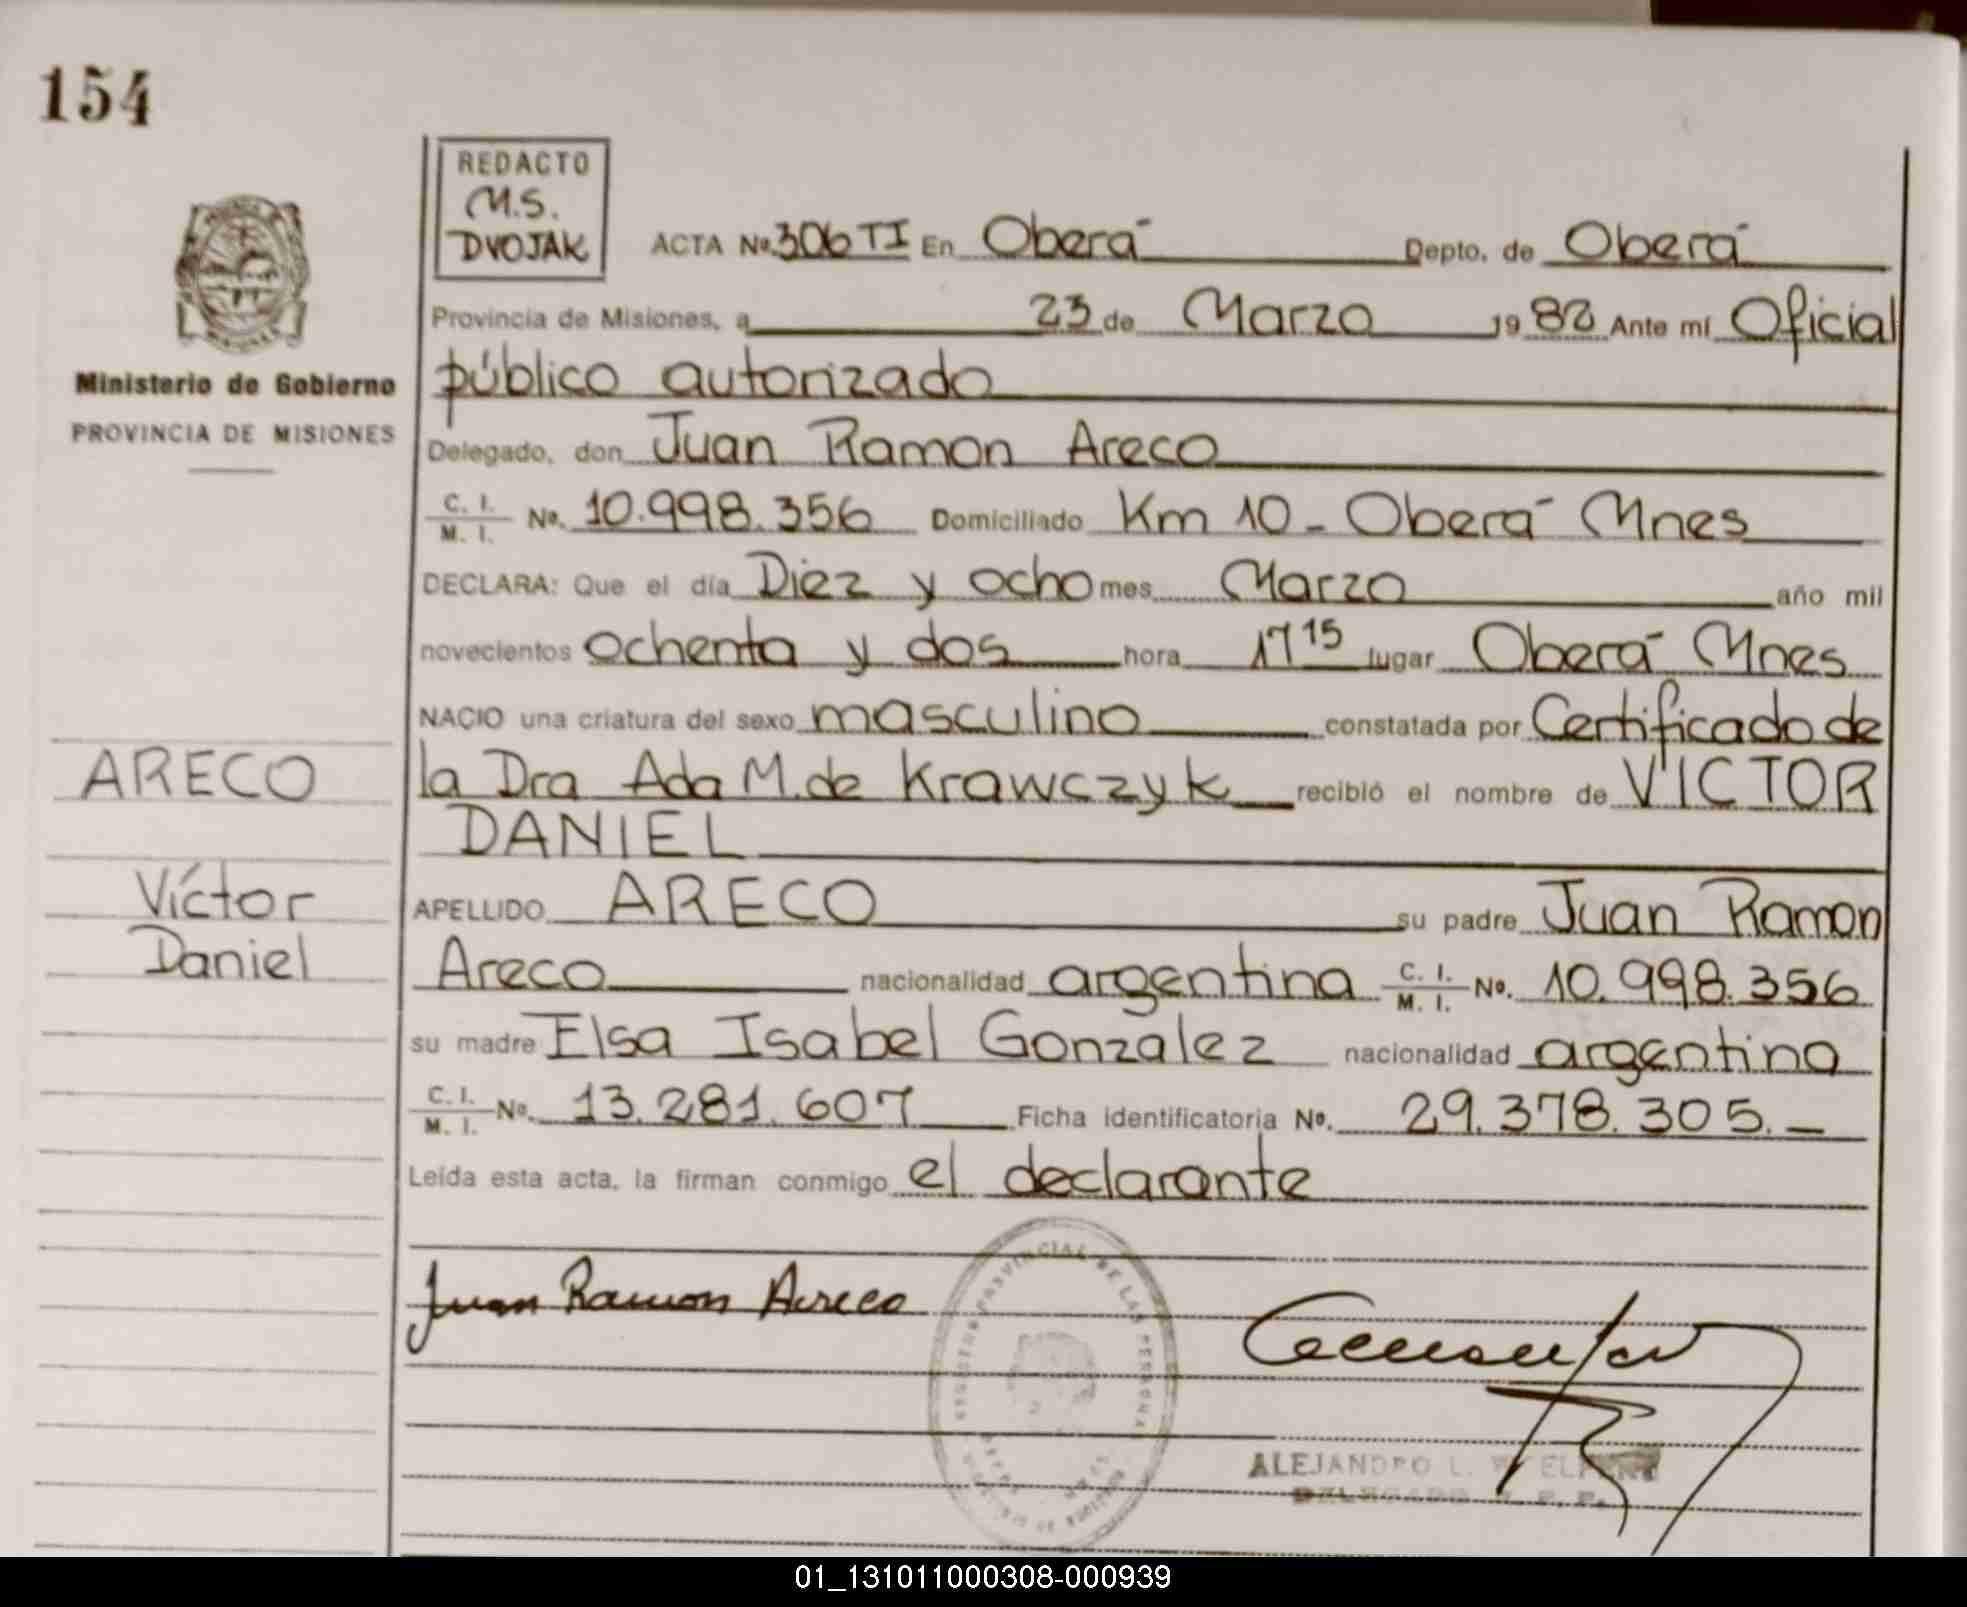 154
REDACTO
M.S.
DVOJAK
ACTA No. 306 TI En Oberá Depto. de Oberá
Provincia de Misiones, a 23 de Marzo 19 82 Ante mí Oficial
público autorizado
Delegado, don Juan Ramon Areco
C. I.
M. I. No. 10.998.356 Domiciliado Km 10 - Oberá Mnes
DECLARA: Que el día Diez y ocho mes Marzo año mil
novecientos ochenta y dos hora 17 15 lugar Oberá Mnes
NACIO una criatura del sexo masculino constatada por Certificado de
la Dra Ada M. de Krawczyk recibió el nombre de VICTOR
DANIEL
APELLIDO ARECO su padre Juan Ramon
Areco nacionalidad argentina C. I. M. I. No. 10.998.356
su madre Elsa Isabel Gonzalez nacionalidad argentina
C. I.
M. I. No. 13.281.607 Ficha identificatoria No. 29.378.305.-
Leída esta acta, la firman conmigo el declarante
Juan Ramon Areco
ALEJANDRO L.
DELEGADO
Ministerio de Gobierno
PROVINCIA DE MISIONES
ARECO
Víctor
Daniel
01_131011000308-000939